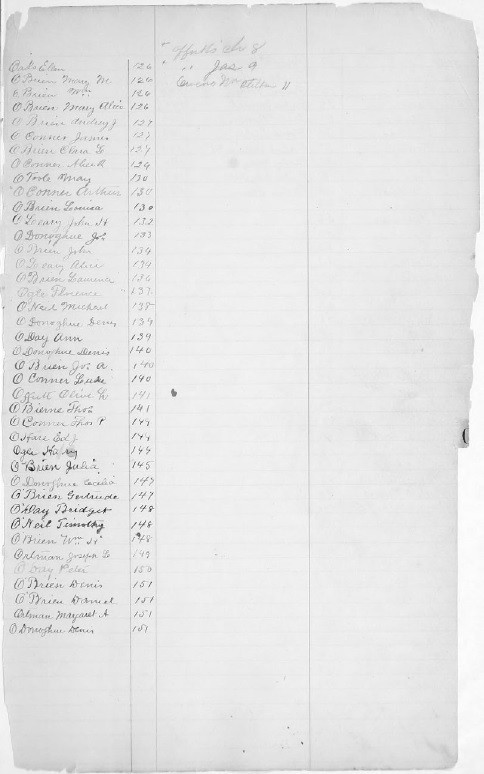 Elen 126
O Brien Mary M 126
O Brien Wm 126
O Brien Mary Alice 126
O Brien Audrey J 127
O Conner James 127
O Brien Clara L 127
O Conner Alice R 129
O Toole May 130
O Conner Arthur 130
O Brien Louisa 130
O Leary John H 132
O Donoghue Jos 133
O Brien John 134
O Leary Alice 134
O Brien Louisa 136
Ogle Florence 137
O'Neil Michael 138
O Donoghue Denis 139
O Day Ann 139
O Donoghue Denis 140
O Brien Jos A. 140
O Conner Luke 140
Offutt Olive L 141
O Bierne Thos 141
O Conner Thos P 144
O Hare Ed J 144
Ogle Harry 144
O'Brien Julia 145
O Donoghue Cecelia 147
O'Brien Gertrude 147
O'Day Bridget 148
O'Neil Timothy 148
O Brien Wm H 148
Ortman Joseph L 149
O Day Peter 150
O'Brien Denis 151
O'Brien Daniel 151
Ortman Margaret A 151
O Donoghue Denis 151
" Jas. A
Owens Wm